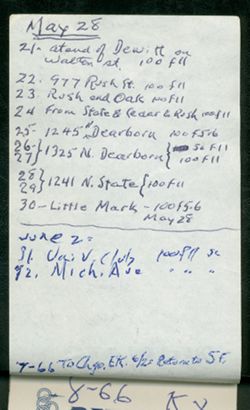 May 28
21- at end of Dewitt on
Walton st. 100 f 11
22. 977 Rush St. 100 f 11
23. Rush and Oak 100 f 11
24 from State & Cedar & Rush 100 f 11
25- 1245 N Dearborn 100 f 5.6
26-
27} 1325 N. Dearborn} 56 f 11
100 f 11
28}
29} 1241 N. State {100 f 11
30- Little Mark - 100 f 5.6
May 28
June 2-
31. Univ. Club 100 f 11
32. Mich. Ave " " "
7-66 To Chgo. EK. Return to S.F.
8-66 K